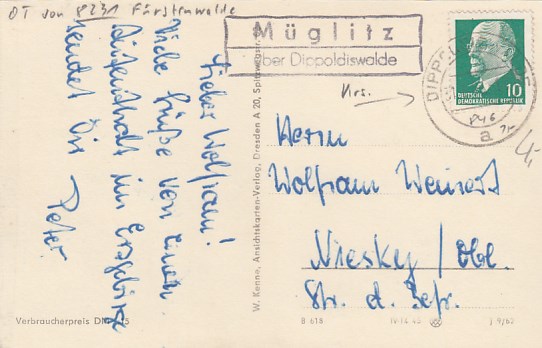 OT von 8231 Fürstenwalde
Müglitz
über Dippoldiswalde
10
DEUTSCHE
DEMOKRATISCHE REPUBLIK
DIPPOL
a
Krs.
Lieber Wolfram!
Viele Grüße von einem
Aufenthalt im Erzgebirge
sendet Dir Peter
Herrn
Wolfram Weinert
Niesky / Obl.
Str. d. Befr.
W. Kenne, Ansichtskarten-Verlag, Dresden A 20, Spitzwegstr.
Verbraucherpreis DM
B 618
J 9/62